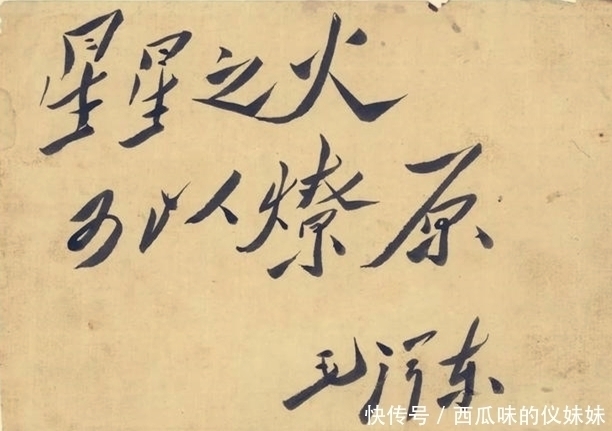 星星之火
可以燎原
毛泽东
快传号/西瓜味的仪妹妹